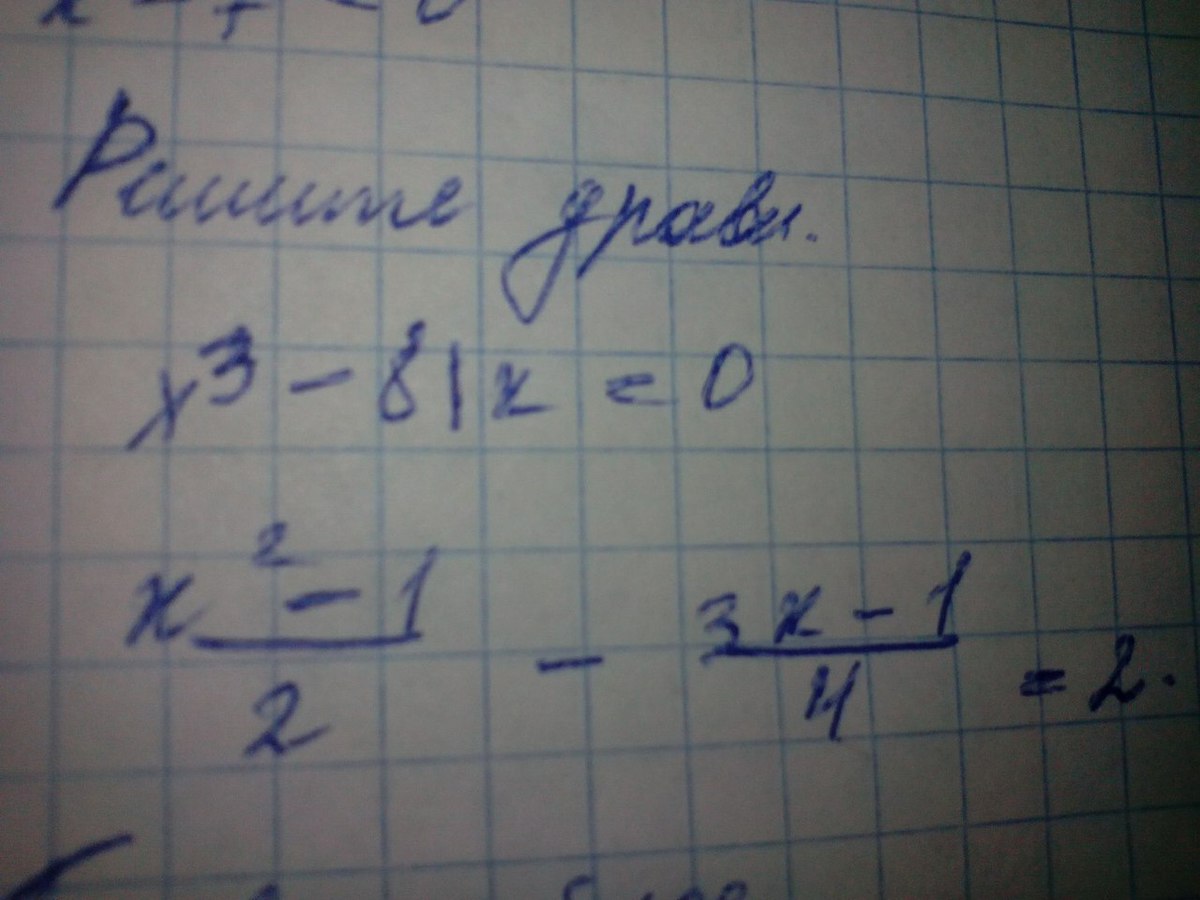 Решите уравн.
x³ - 81x = 0
x² - 1 / 2 - 3x - 1 / 4 = 2.